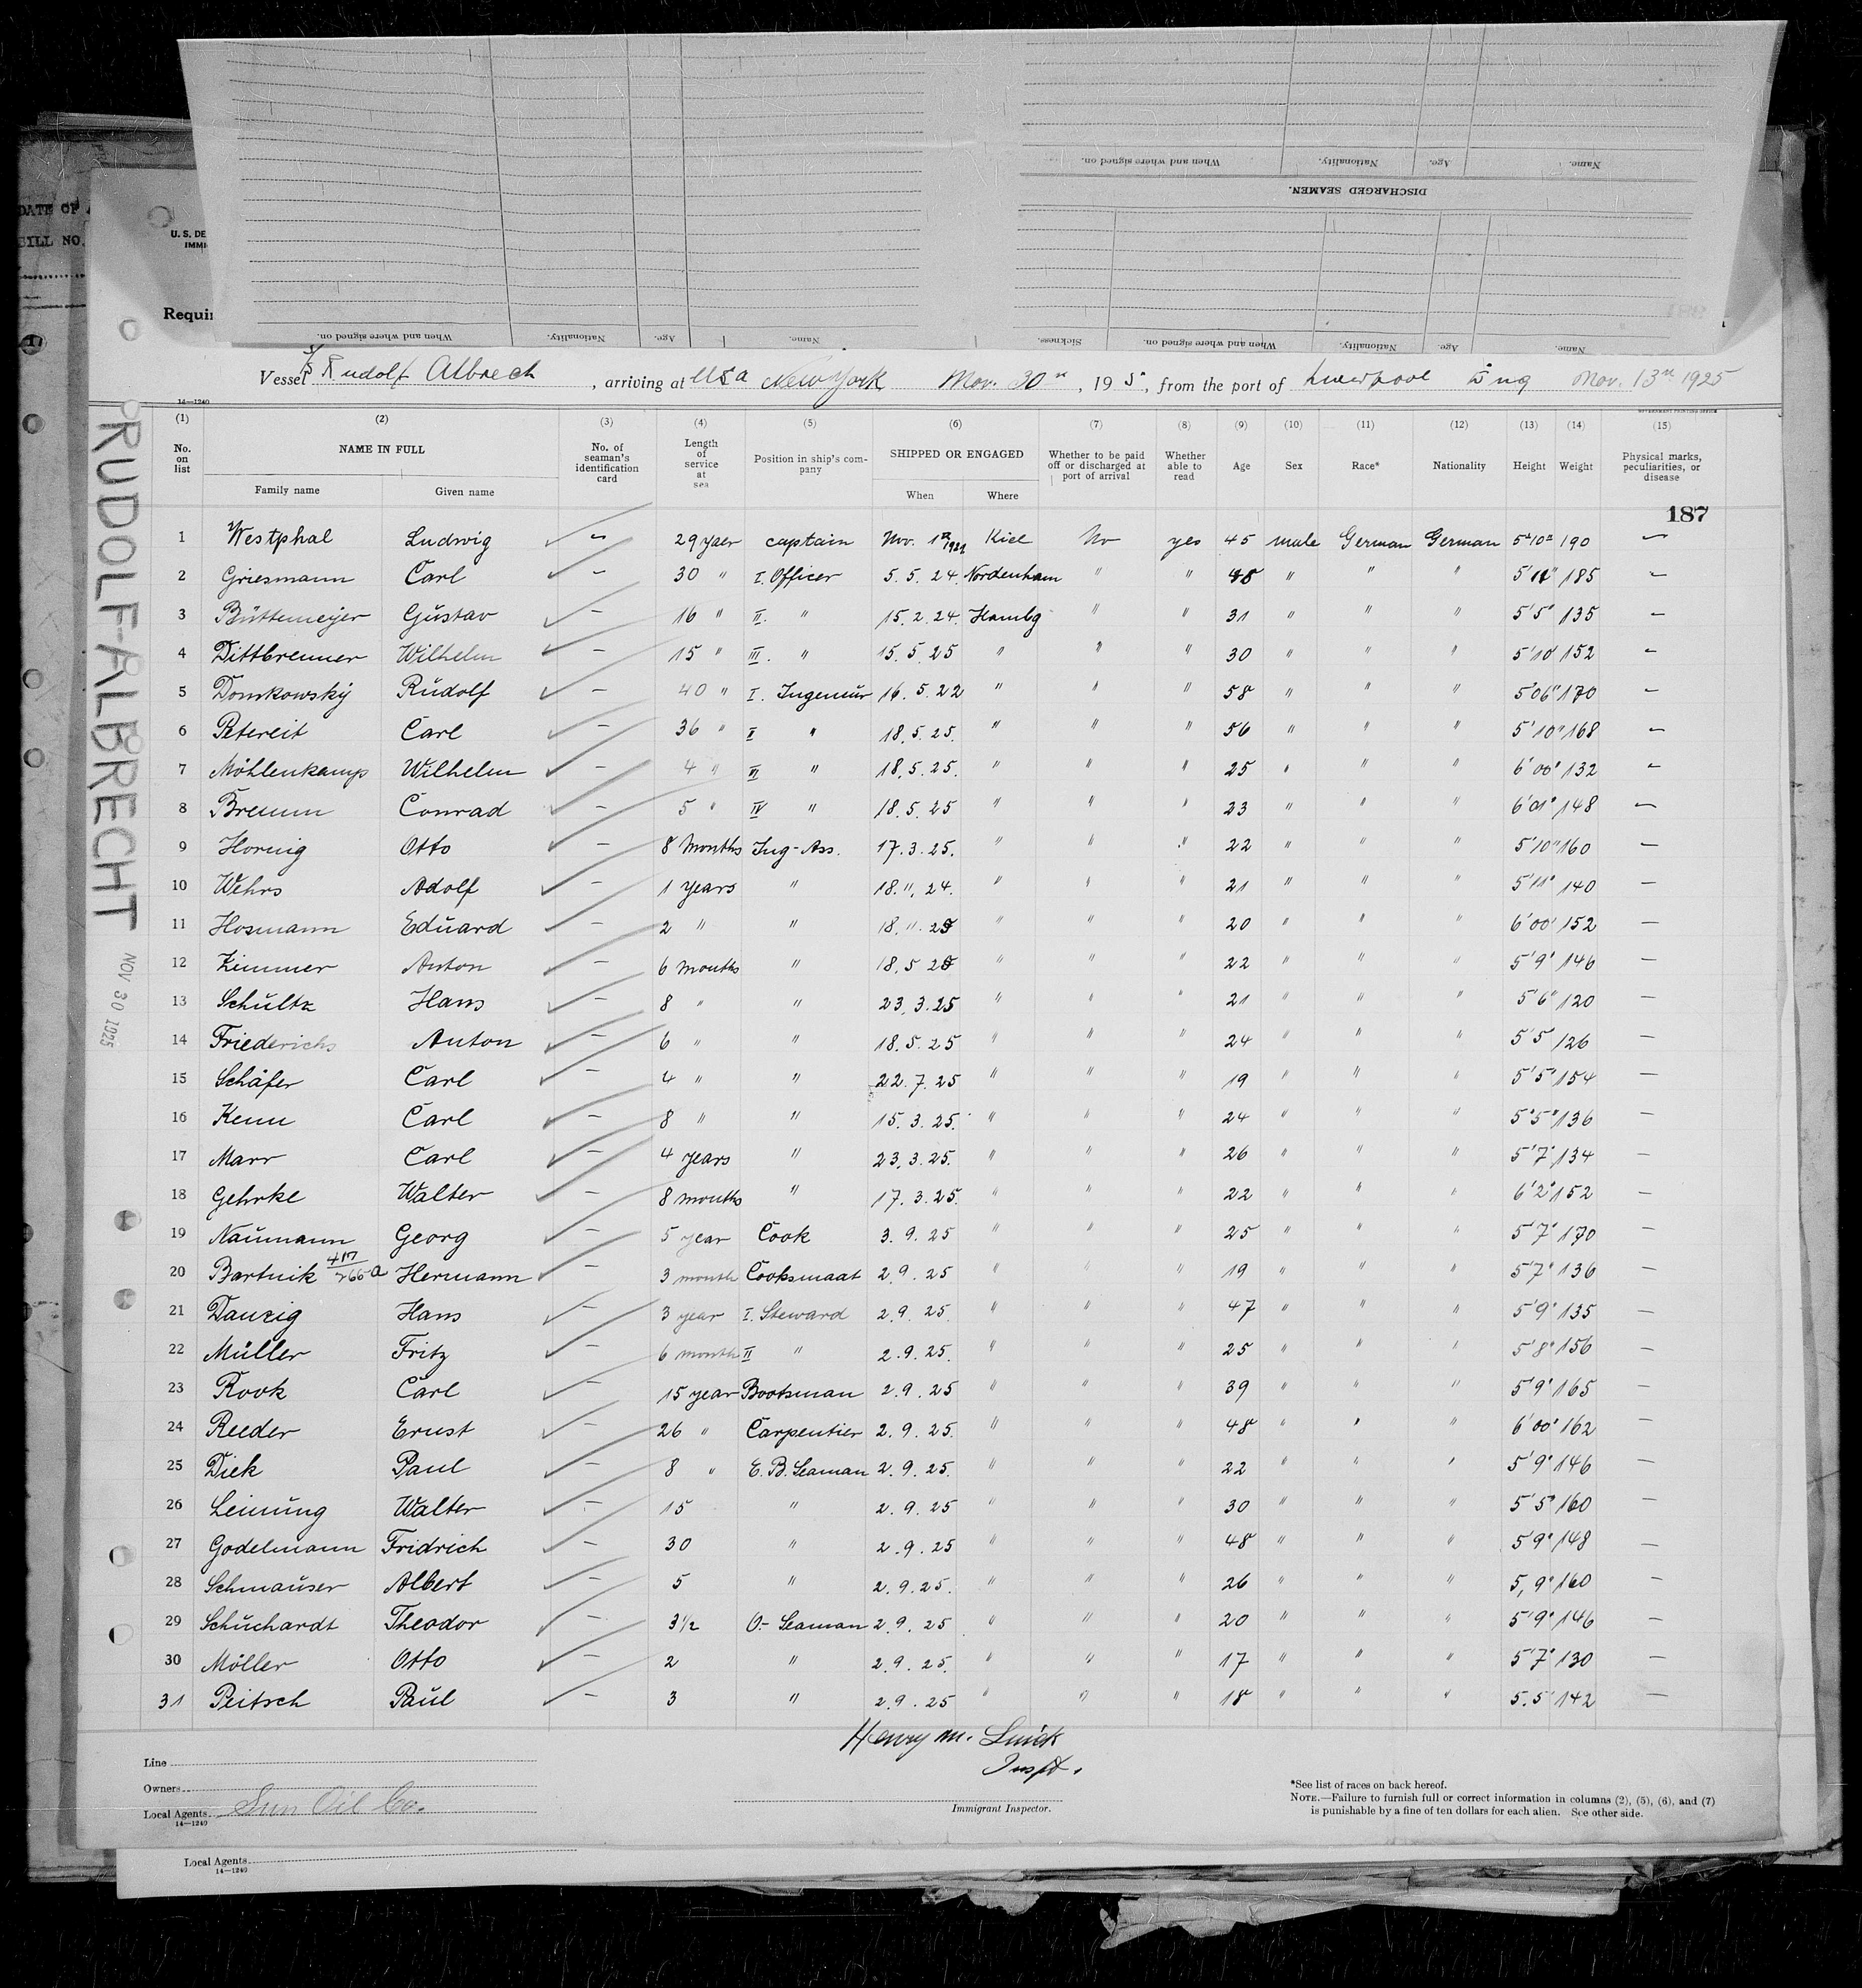 DATE OF
BILL NO.
U. S. DE
IMMI
Requir
Name.
Age.
Nationality.
When and where signed on.
DISCHARGED SEAMEN.
Name.
Age.
Nationality.
When and where signed on.
Sickness.
Name.
Age.
Nationality.
When and where signed on.
Vessel Rudolf Albrech, arriving at USA New York Nov. 30th, 195, from the port of Liverpool Eng Nov. 13th 1925
14—1240
GOVERNMENT PRINTING OFFICE
(1) (2) (3) (4) (5) (6) (7) (8) (9) (10) (11) (12) (13) (14) (15)
No. on list NAME IN FULL No. of seaman's identification card Length of service at sea Position in ship's company SHIPPED OR ENGAGED Whether to be paid off or discharged at port of arrival Whether able to read Age Sex Race* Nationality Height Weight Physical marks, peculiarities, or disease
Family name Given name When Where
187
1 Westphal Ludwig – 29 yaer captain Nov. 1st 1921 Kiel No yes 45 male German German 5'10" 190 –
2 Griesmann Carl – 30 " I. Officer 5. 5. 24. Nordenham " " 48 " " " 5'11" 185 –
3 Büttemeyer Gustav – 16 " II. " 15. 2. 24. Hambg " " 31 " " " 5'5" 135 –
4 Dittbrenner Wilhelm – 15 " III. " 15. 5. 25 " " " 30 " " " 5'10 152 –
5 Domkowsky Rudolf – 40 " I. Ingeniür 16. 5. 22 " " " 58 " " " 5'06" 170 –
6 Petereit Carl – 36 " II " 18. 5. 25. " " " 56 " " " 5'10" 168 –
7 Möhlenkamp Wilhelm – 4 " III " 18. 5. 25. " " " 25 " " " 6'00" 132 –
8 Bremm Conrad – 5 " IV " 18. 5. 25 " " " 23 " " " 6'01" 148 –
9 Hornig Otto – 8 Months Ing-Ass. 17. 3. 25. " " " 22 " " " 5'10" 160 –
10 Wehrs Adolf – 1 years " 18. 11. 24. " " " 21 " " " 5'11" 140 –
11 Hosmann Eduard – 2 " " 18. 11. " " " 20 " " " 6'00 152 –
12 Zimmer Anton – 6 months " 18. 5 " " " 22 " " " 5'9" 146 –
13 Schultz Hans – 8 " " 23. 3. 25 " " " 21 " " " 5'6" 120 –
14 Friederichs Anton – 6 " " 18. 5. 25 " " " 24 " " " 5'5 126 –
15 Schäfer Carl – 4 " " 22. 7. 25 " " " 19 " " " 5'5" 154 –
16 Kenn Carl – 8 " " 15. 3. 25. " " " 24 " " " 5'5" 136 –
17 Marr Carl – 4 years " 23. 3. 25. " " " 26 " " " 5'7" 134 –
18 Gehrke Walter – 8 months " 17. 3. 25. " " " 22 " " " 6'2" 152 –
19 Naumann Georg – 5 year Cook 3. 9. 25 " " " 25 " " " 5'7" 170 –
20 Bartnik Hermann – 3 month Cooksmaat 2. 9. 25 " " " 19 " " " 5'7" 136 –
21 Danzig Hans – 3 year I. Steward 2. 9. 25. " " " 47 " " " 5'9" 135 –
22 Müller Fritz – 6 month II " 2. 9. 25. " " " 25 " " " 5'8" 156 –
23 Rook Carl – 15 year Bootsman 2. 9. 25 " " " 39 " " " 5'9" 165 –
24 Reeder Ernst – 26 " Carpentier 2. 9. 25. " " " 48 " " " 6'00" 162 –
25 Diek Paul – 8 " E. B. Seaman 2. 9. 25. " " " 22 " " " 5'9" 146 –
26 Leinung Walter – 15 " 2. 9. 25 " " " 30 " " " 5'5" 160 –
27 Godelmann Fridrich – 30 " 2. 9. 25 " " " 48 " " " 5 9" 148 –
28 Schmauser Albert – 5 " 2. 9. 25. " " " 26 " " " 5,9" 160 –
29 Schuchardt Theodor – 3 1/2 O- Seaman 2. 9. 25 " " " 20 " " " 5'9" 146 –
30 Möller Otto – 2 " 2. 9. 25. " " " 17 " " " 5'7" 130 –
31 Peitsch Paul – 3 " 2. 9. 25 " " " 18 " " " 5.5 142 –
RUDOLF ALBRECHT
NOV 30 1925
Henry M.
Inspt.
Line
Owners
Local Agents Sun Oil Co.
14—1240
Immigrant Inspector.
*See list of races on back hereof.
NOTE.—Failure to furnish full or correct information in columns (2), (5), (6), and (7)
is punishable by a fine of ten dollars for each alien. See other side.
Local Agents
14—1240